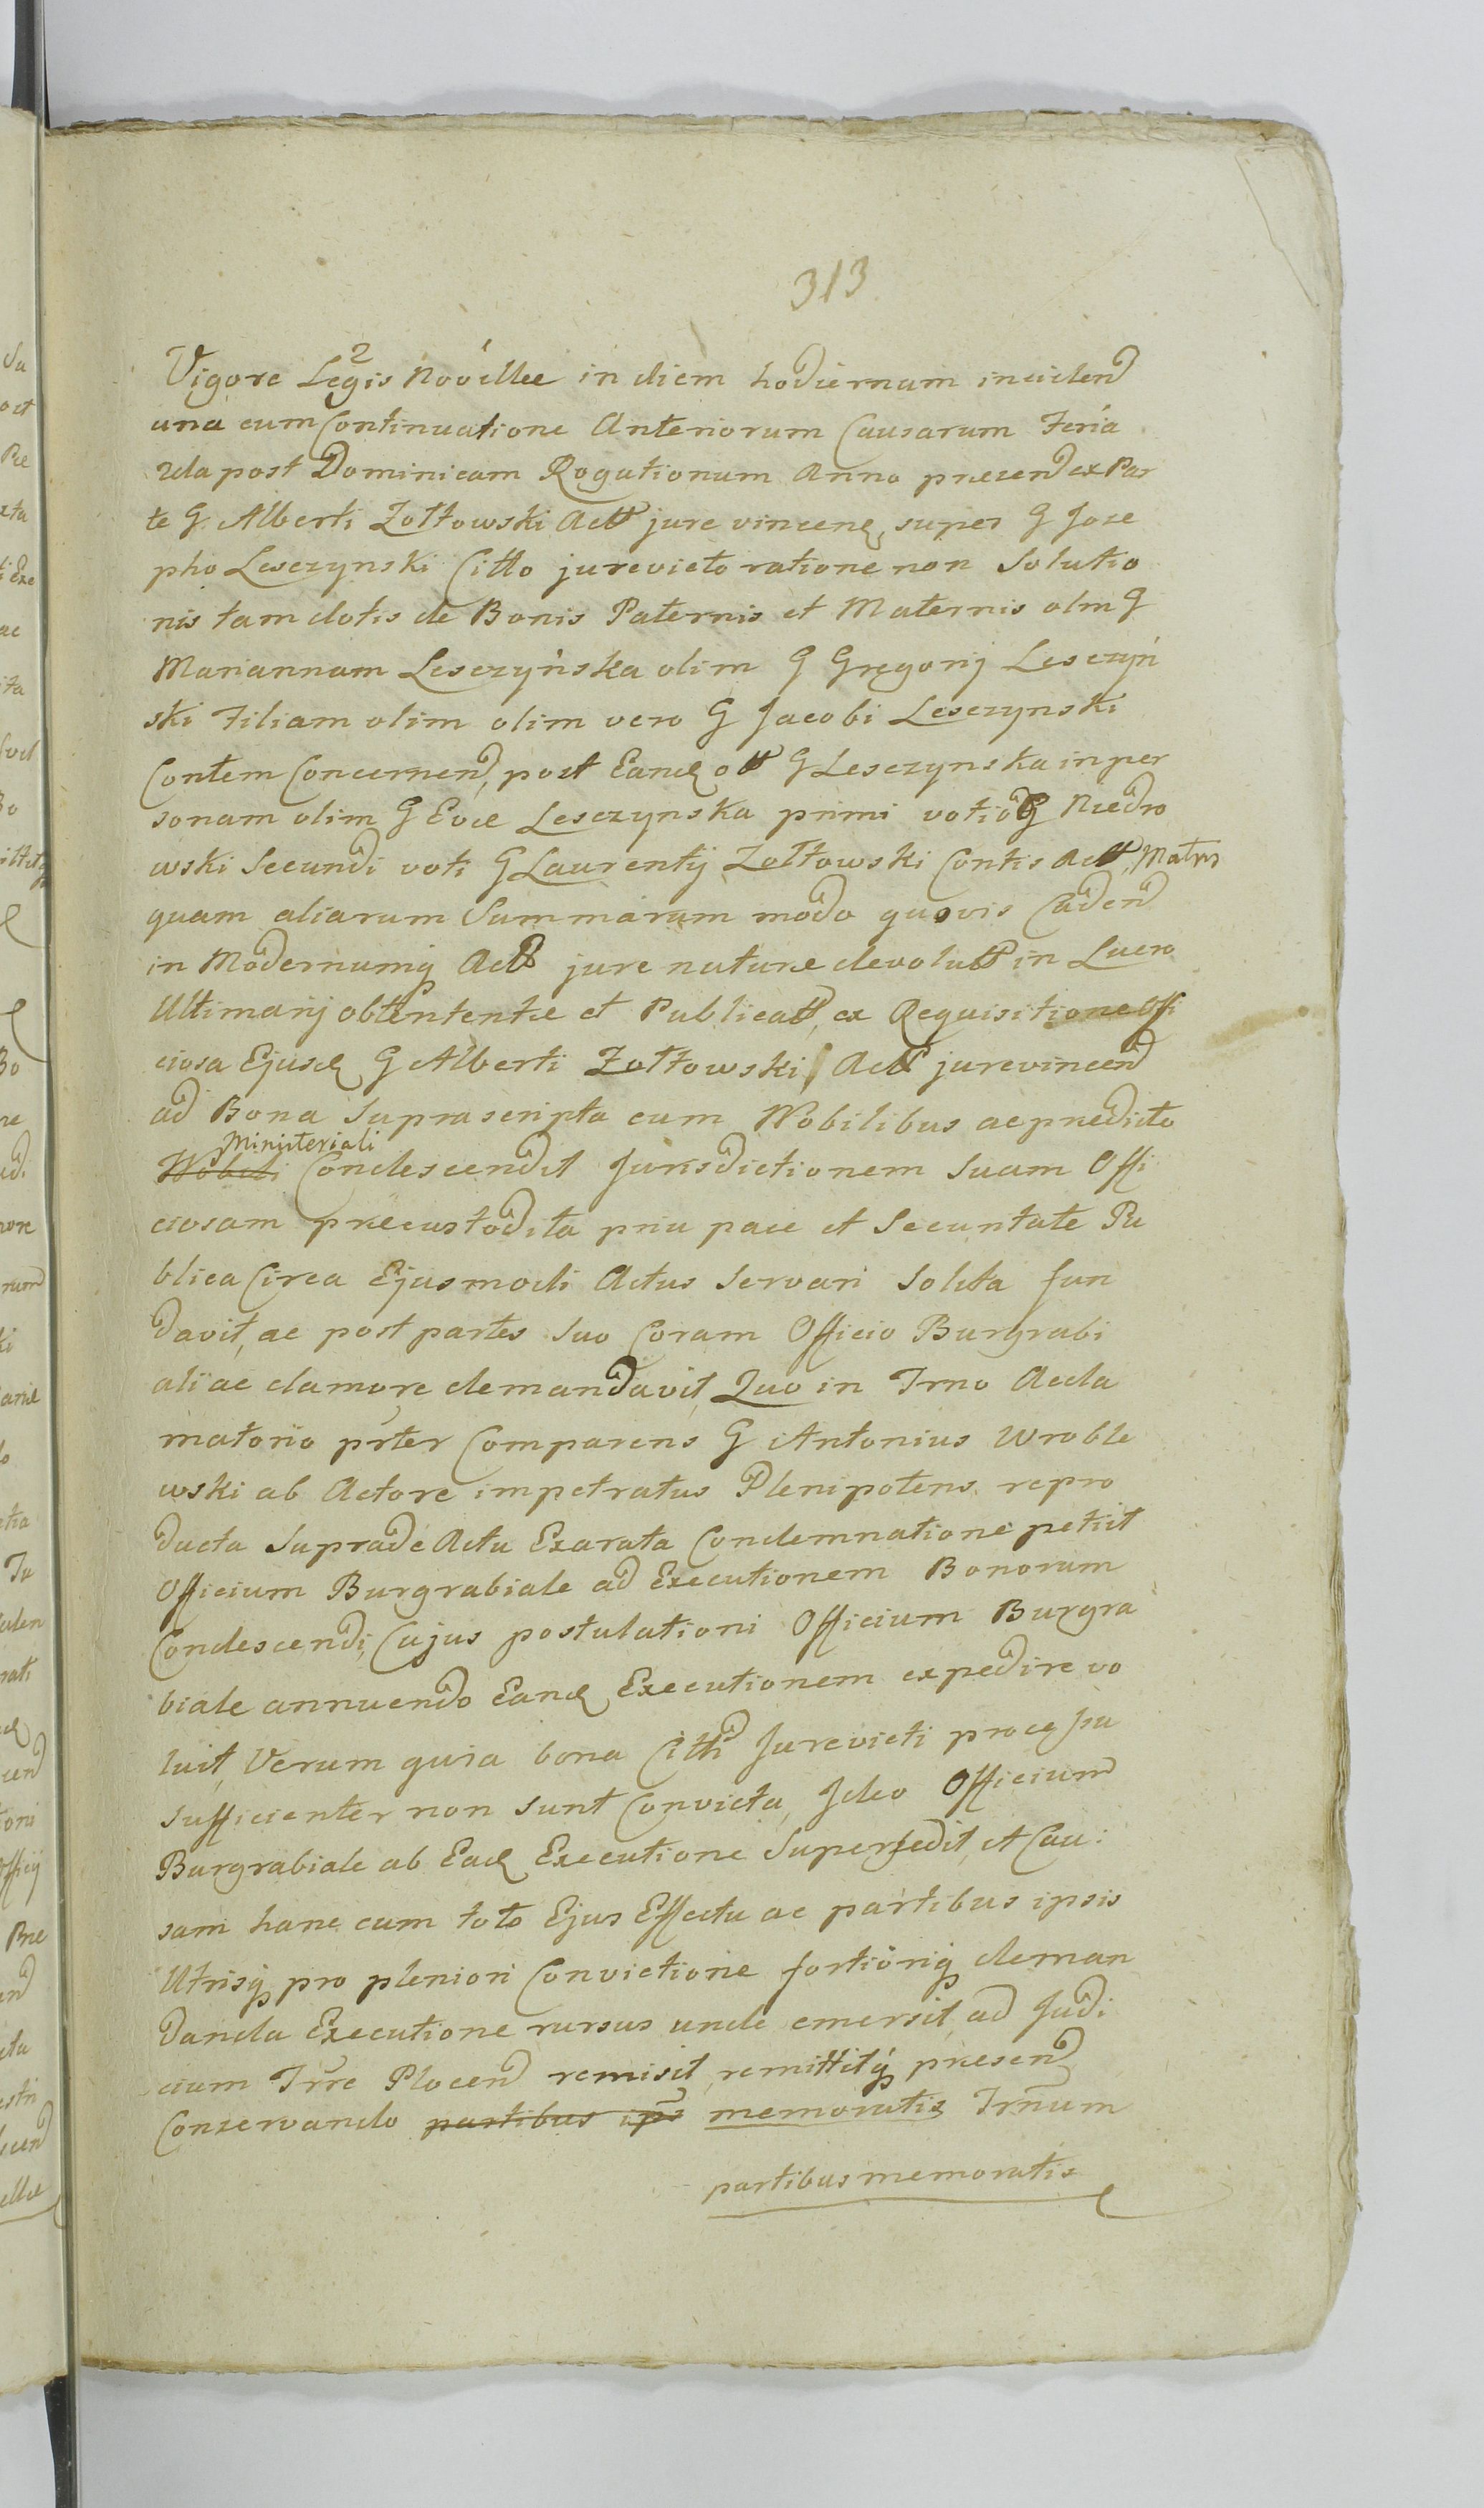 313
Vigore Legis Novellæ in diem hodiernam inciden
una cum Continuatione Anteriorum Causarum Feria
2da post Dominicam Rogationum Anno præsen ex Par
te G. Alberti Zołtowski Act jure vincen super G Jose
pho Lesczynski Citto jurevicto ratione non Solutio
nis tam dotis de Bonis Paternis et Maternis olm G
Mariannam Lesczyńska olim G Gregorij Lesczyń
ski Filiam olim olim vero G Jacobi Lesczynski
Contem Concernen, post Eand ott G Lesczynska in per
sonam olim G Evæ Lesczynska primi voti G Niedro
wski Secundi voti G Laurentij Zołtowski Contis Act, Matris
quam aliarum Summarum modo quovis Caden
in Modernumq Act jure naturæ devolutt in Lucro
Ultimarij obtententæ et Publicatt, ex Requisitione Offi
ciosa Ejusd G Alberti Zołtowski Act jurevincen
ad Bona Suprascripta cum Nobilibus ac prædicto
Ministeriali
Nobili Condescendit Jurisdictionem Suam Offi
ciosam præcustodita priu pace et Securitate Pu
blica Circa Ejusmodi Actus Servari Solita fun
davit, ac post partes Suo Coram Officio Burgrabi
ali ac clamore demandavit, Quo in Trno Accla
matorio prter Comparens G Antonius Wroble
wski ab Actore impetratus Plenipotens repro
ducta Suprade Actu Exarata Condemnatione petiit
Officium Burgrabiale ad Executionem Bonorum
Condescendi, Cujus postulationi Officium Burgra
biale annuendo Eand Executionem expedire vo
luit, Verum quia bona Citti Jurevicti processu
sufficienter non sunt Convicta, Ideo Officium
Burgrabiale ab Ead Executione Supersedit, et Cau:
sam hanc cum toto Ejus Effectu ac partibus ipsis
Utrisq pro pleniori Convictione fortiōriq deman
danda Executione rursus unde emersit, ad Judi
cium Trre Plocen remisit, remittitq præsen
Conservando partibus ips memoratis Trnum
partibus memoratis